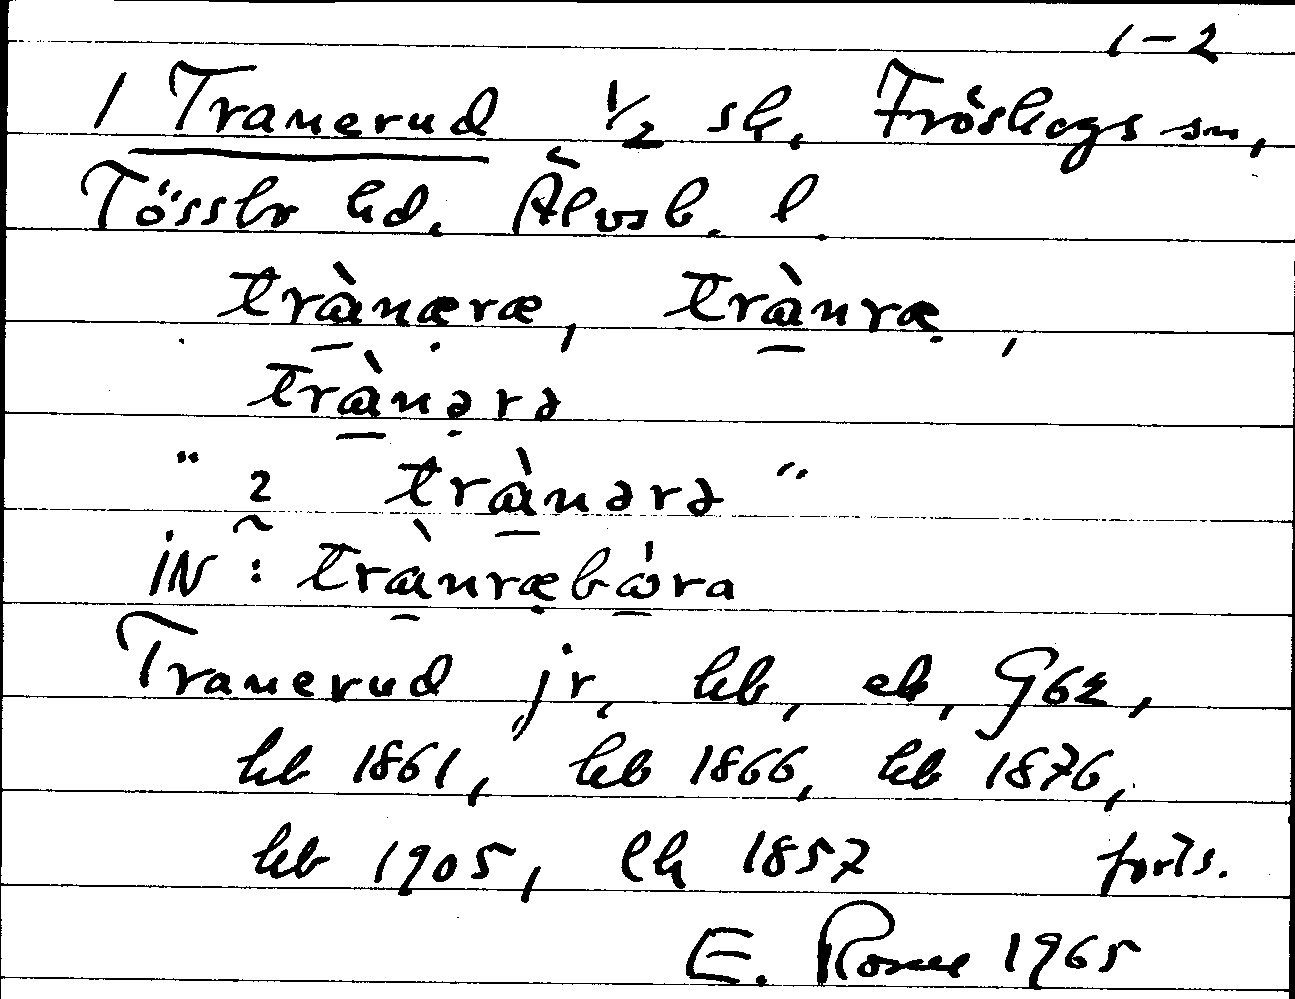 1-2
1 Tranerud 1/2 sk. Fröskogs sn,
Tössbo hd. Älvsb. l.
trànæræ, trànræ,
trànərə
" 2 trànərə "
iN: trànræbòra
Tranerud jr, hb, ek, G62,
hb 1861, hb 1866, hb 1876,
hb 1905, lk 1857 forts.
E. 1965